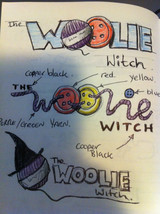 The
WOOLIE
Witch.
copper black
red.
yellow
blue
THE
Woolie
WITCH
yarn.
Cooper
Black
The
WOOLIE
Witch.